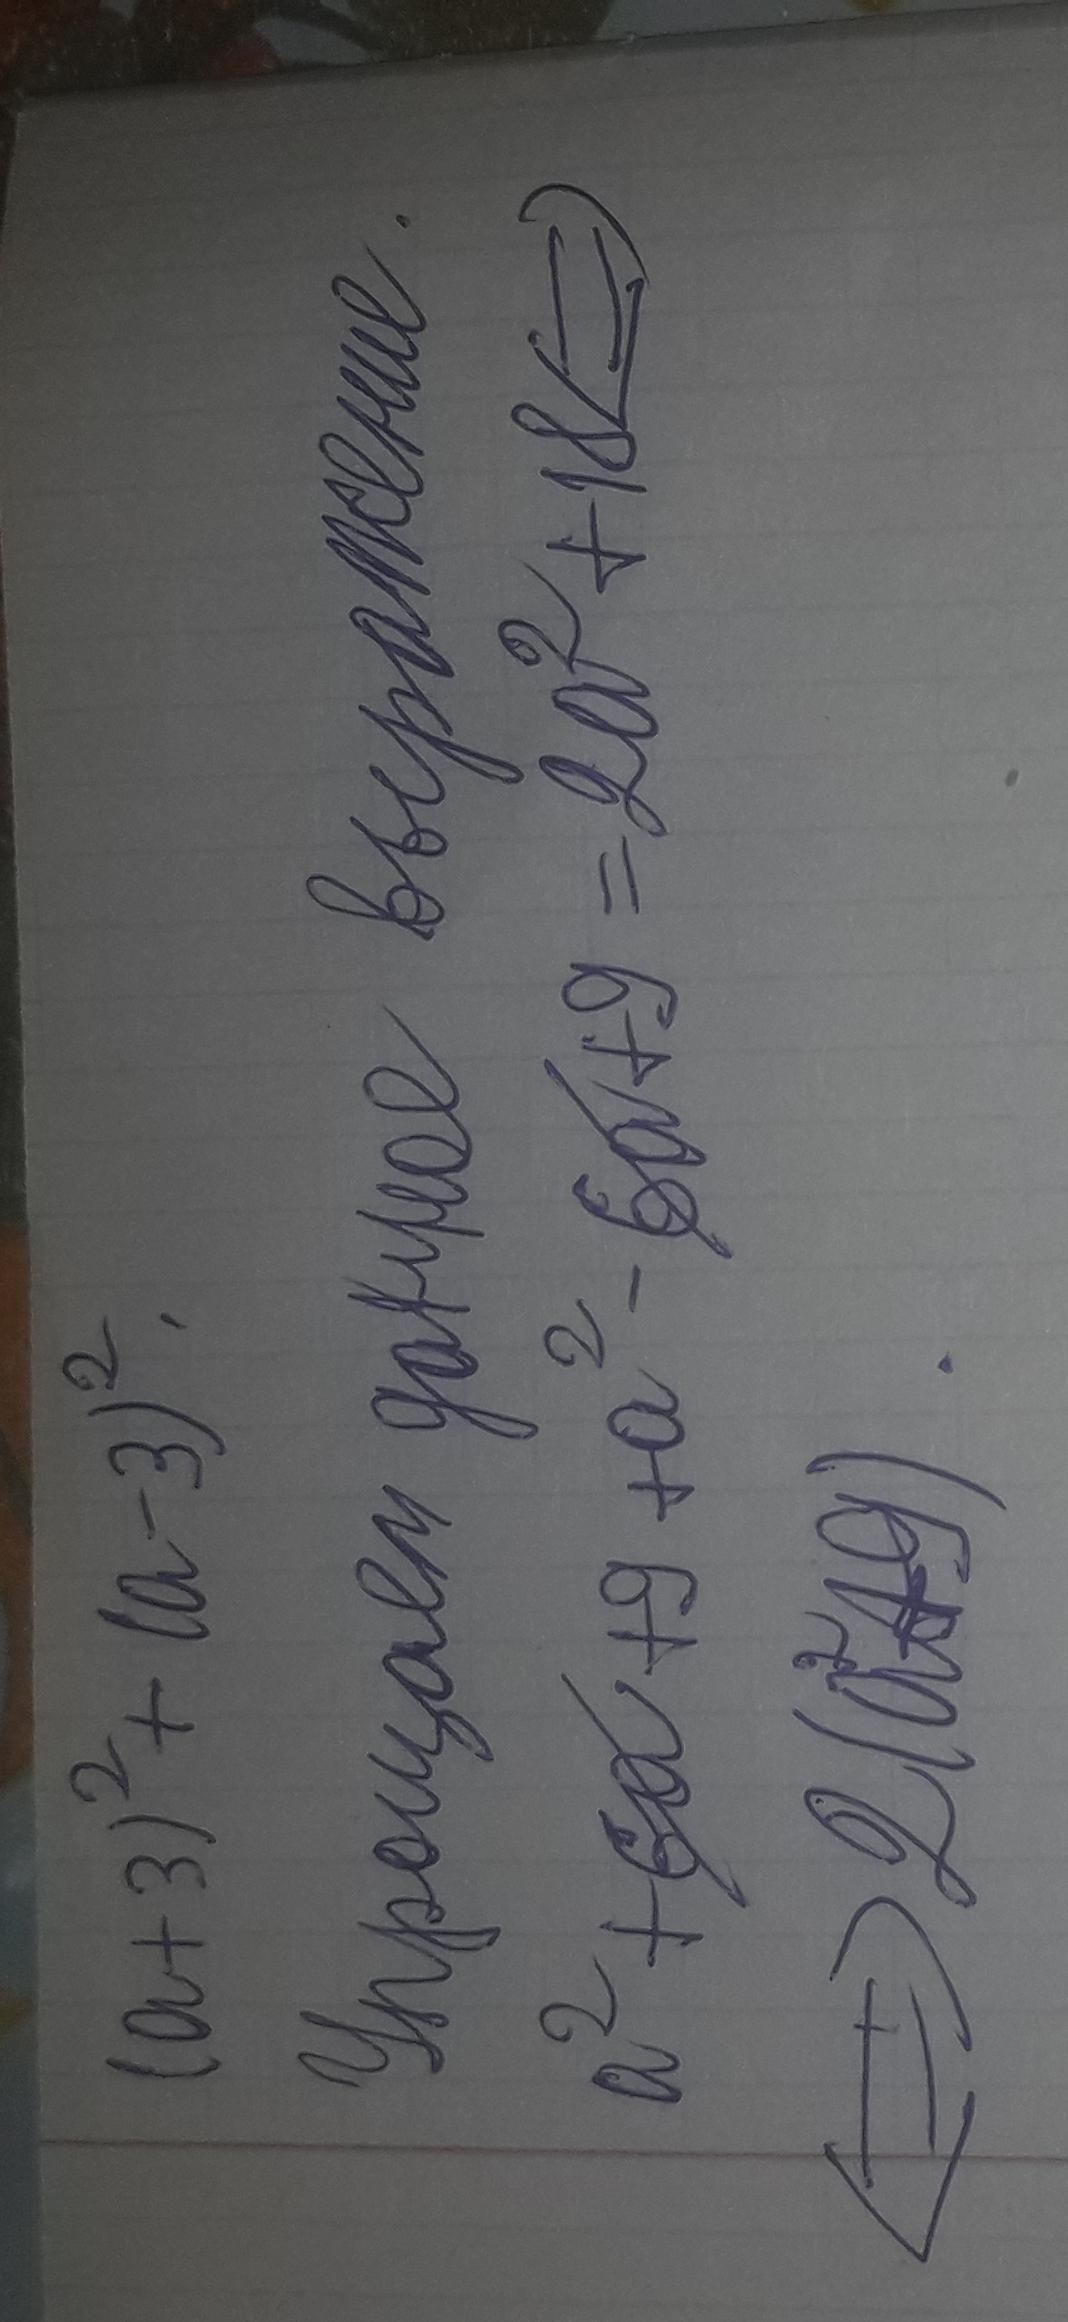 (a+3)²+(a-3)².
Упрощаем данное выражение.
a²+6a+9+a²-6a+9=2a²+18⇔
⇔2(a²+9).